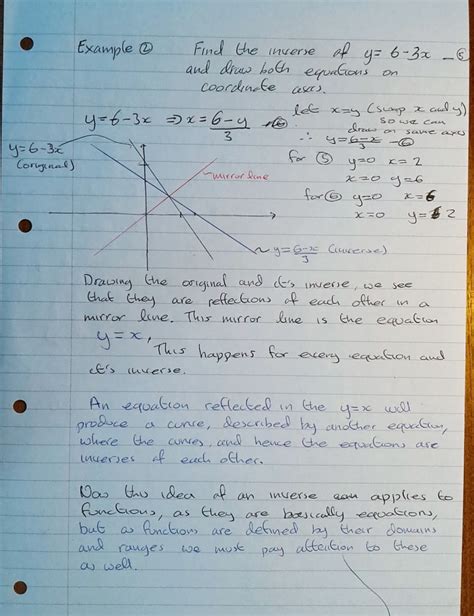 Example ② Find the inverse of y = 6-3x —⑤
and draw both equations on
coordinate axes.
y=6-3x ⇒ x = 6-y/3 —⑥
let x=y (swap x and y)
so we can
draw on same axes
∴ y = 6-x/3 —⑥
y=6-3x
(original)
for ⑤ y=0 x=2
x=0 y=6
for ⑥ y=0 x=6
x=0 y=2
mirror line
y = 6-x/3 (inverse)
Drawing the original and it's inverse, we see
that they are reflections of each other in a
mirror line. This mirror line is the equation
y=x,
This happens for every equation and
it's inverse.
An equation reflected in the y=x will
produce a curve, described by another equation,
where the curves, and hence the equations are
inverses of each other.
Now this idea of an inverse applies to
functions, as they are basically equations,
but as functions are defined by their domains
and ranges we must pay attention to these
as well.